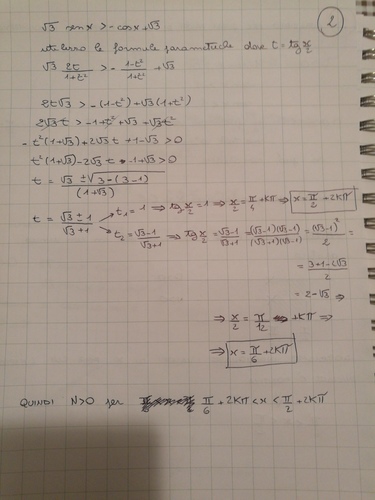 ②
√3 senx > -cosx+√3
utilizzo le formule parametriche dove t = tg x/2
√3 2t/(1+t²) > - (1-t²)/(1+t²) + √3
2t√3 > -(1-t²)+√3(1+t²)
2√3t > -1+t²+√3+√3t²
-t²(1+√3)+2√3t+1-√3>0
t²(1+√3)-2√3t -1+√3>0
t = (√3 ± √(3-(3-1)))/(1+√3)
t = (√3±1)/(√3+1) → t₁ = 1 ⇒ tg x/2 = 1 ⇒ x/2 = π/4 + Kπ ⇒ x = π/2 + 2Kπ
t₂ = (√3-1)/(√3+1) ⇒ tg x/2 = (√3-1)/(√3+1) = (√3-1)(√3-1)/(√3+1)(√3-1) = (√3-1)²/2 =
= (3+1-2√3)/2
= 2-√3 ⇒
⇒ x/2 = π/12 + Kπ ⇒
⇒ x = π/6 + 2Kπ
QUINDI N>0 per π/6 + 2Kπ < x < π/2 + 2Kπ